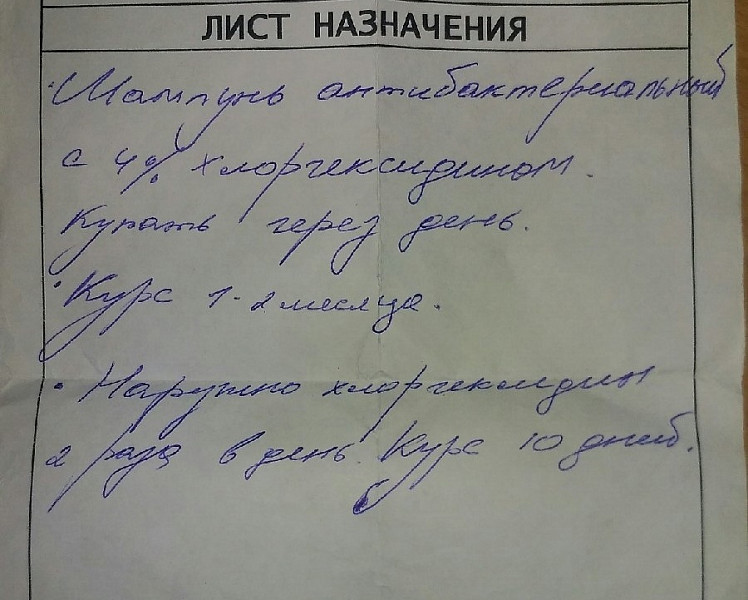 ЛИСТ НАЗНАЧЕНИЯ
· Шампунь антибактериальный
с 4% хлоргексидином.
Купать через день.
· Курс 1-2 месяца.
· Наружно хлоргексидин
2 раза в день. Курс 10 дней.